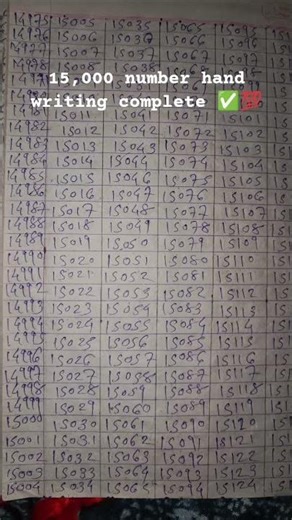 14975 15005 15035 15065 15095
14976 15006 15036 15066 15096
14977 15007 15037 15067 15097
14978 15008 15038 15068
15,000 number hand
writing complete ✅💯
15011 15041 15071 15101
14982 15012 15042 15072 15102 151
14983 15013 15043 15073 15103 151
14984 15014 15044 15074 15104 151
14985 15015 15046 15075 15105 151
14986 15016 15047 15076 15106 151
14987 15017 15048 15077 15107 151
14988 15018 15049 15078 15108 151
14989 15019 15050 15079 15109 151
14990 15020 15051 15080 15110 151
14991 15021 15052 15081 15111 151
14992 15022 15053 15082 15112 151
14993 15023 15054 15083 15113 151
14994 15024 15055 15084 15114 151
14995 15025 15056 15085 15115 151
14996 15026 15057 15086 15116 151
14997 15027 15058 15087 15117 151
14998 15028 15059 15088 15118 151
14999 15029 15060 15089 15119 151
15000 15030 15061 15090 15120 151
15001 15031 15062 15091 15121 151
15002 15032 15063 15092 15122 151
15003 15033 15064 15093 15123 151
15004 15034 15065 15094 15124 151